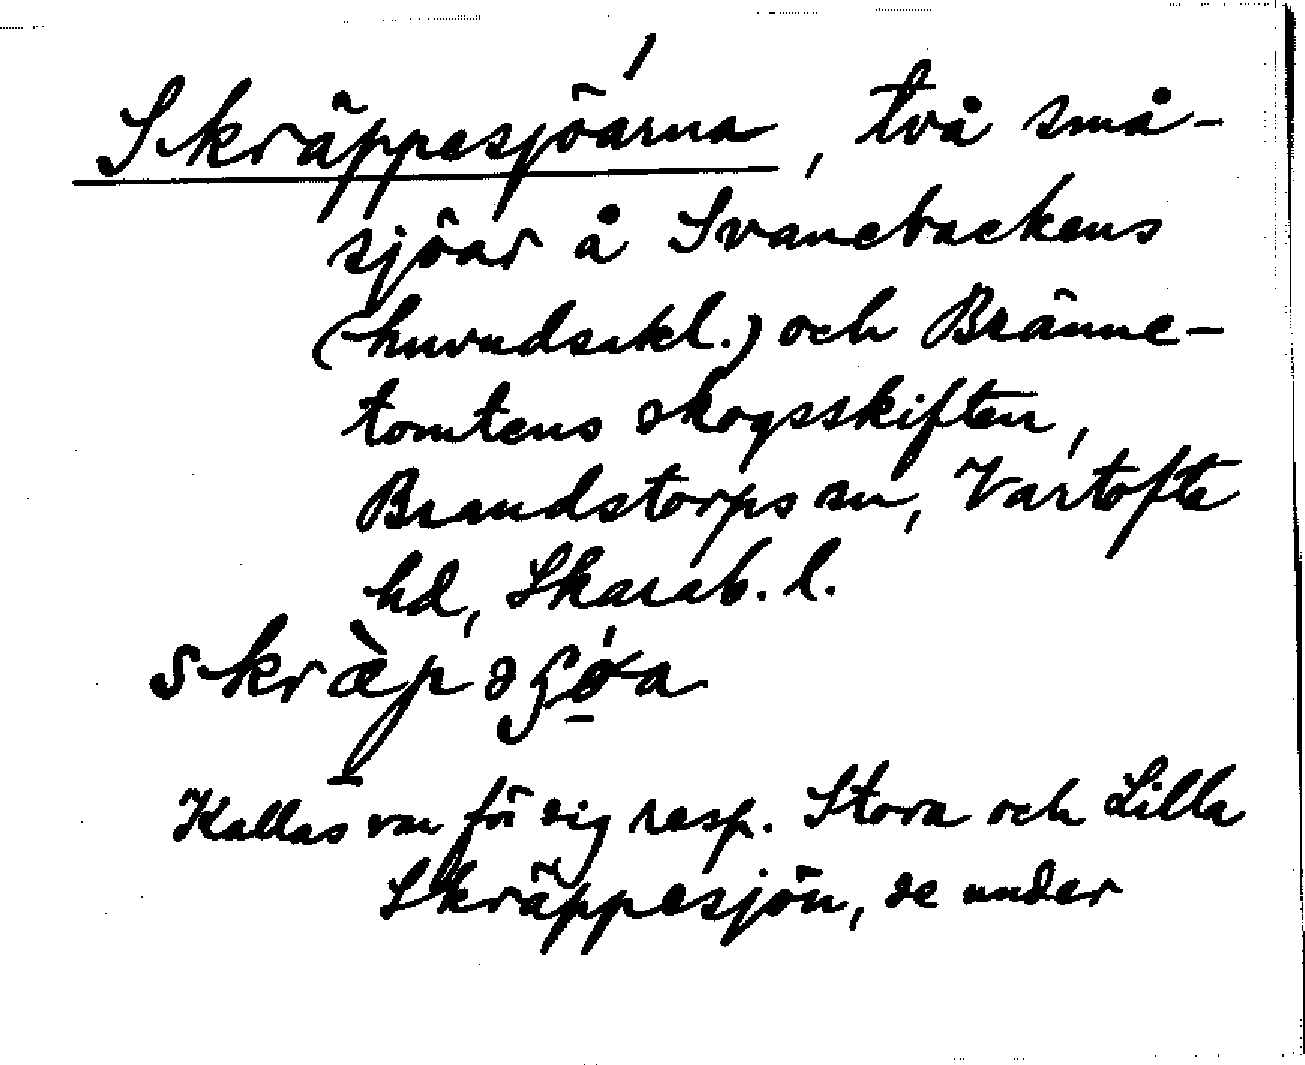 Skräppesjöarna, två små-
sjöar å Svanebackens
(huvudsakl.) och Bränne-
tomtens skogsskiften,
Brandstorps sn, Vartofta
hd, Skarab. l.
Kallas var för sig resp. Stora och Lilla
Skräppesjön, se under